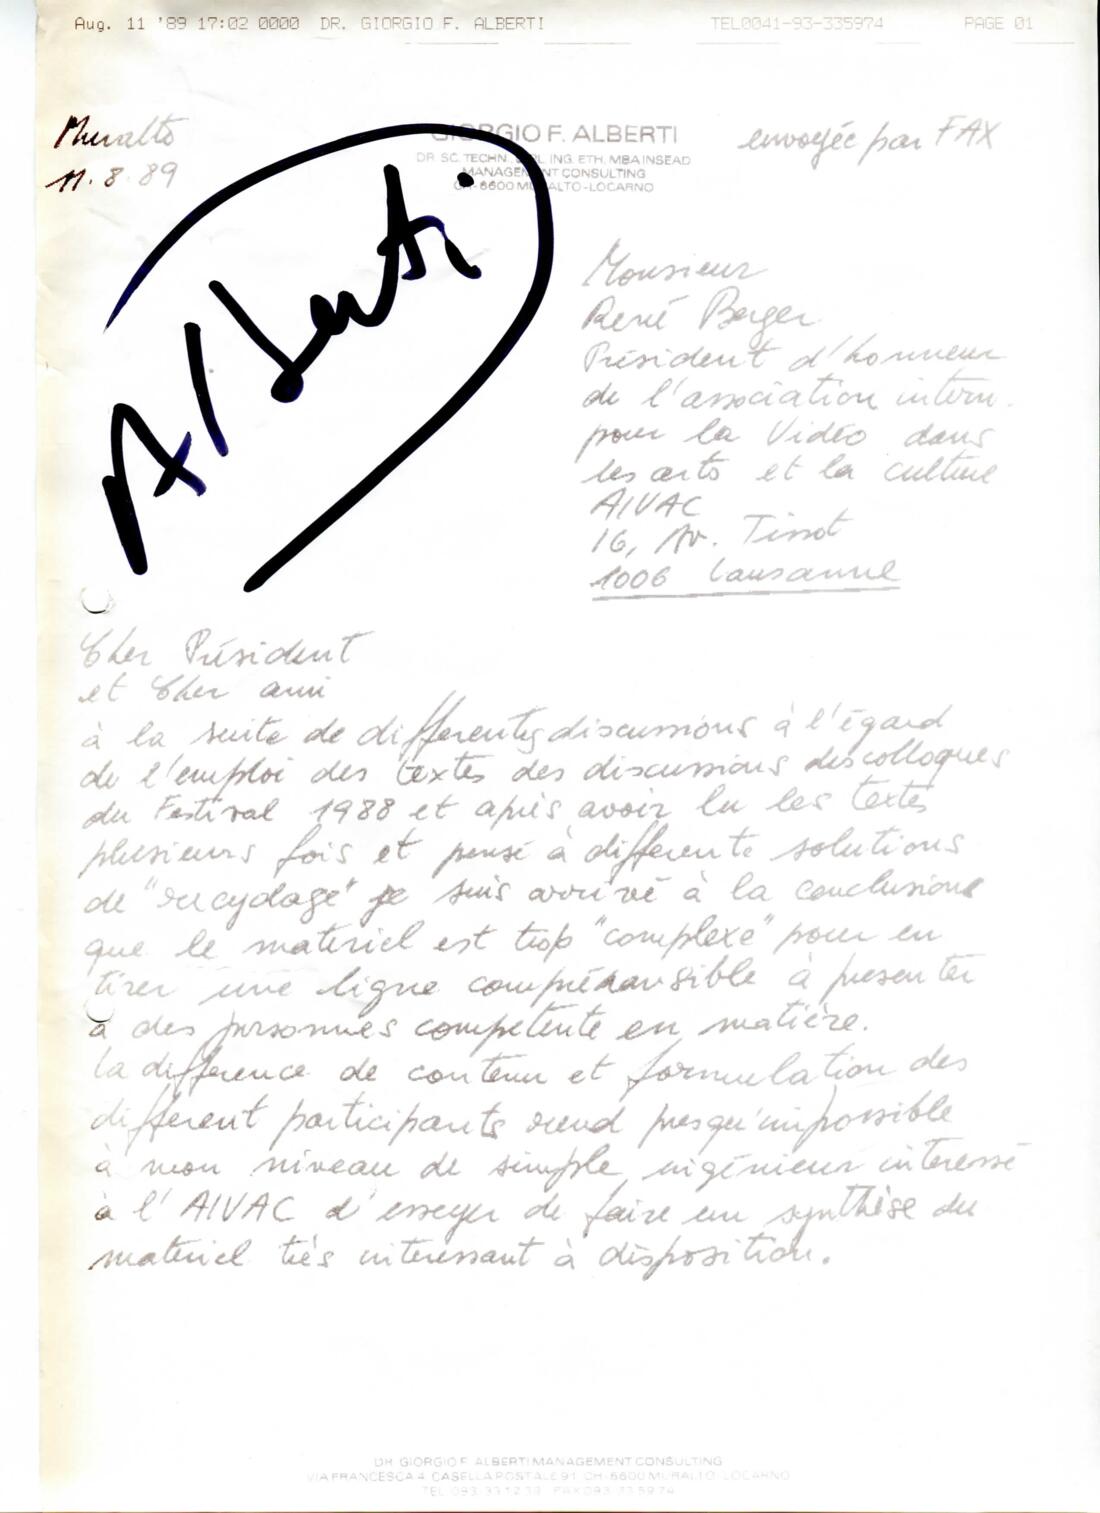 Aug. 11 '89 17:02 0000 DR. GIORGIO F. ALBERTI TEL0041-93-335974 PAGE 01
Muralto
11.8.89
GIORGIO F. ALBERTI
DR. SC. TECHN., DIPL. ING. ETH, MBA INSEAD
MANAGEMENT CONSULTING
CH-6600 MURALTO-LOCARNO
envoyée par FAX
Alberti
Monsieur
René Berger
Président d'honneur
de l'association intern.
pour la Vidéo dans
les arts et la culture
AIVAC
16, Av. Tissot
1006 Lausanne
Cher Président
et Cher ami
à la suite de differentes discussions à l'égard
de l'emploi des textes des discussions des colloques
du Festival 1988 et après avoir lu les textes
plusieurs fois et pensé à differente solutions
de "recyclage" je suis arrivé à la conclusione
que le materiel est trop "complexe" pour en
tirer une ligne compréhansible à presenter
à des personnes competente en matière.
la difference de contenu et formulation des
different participants rend presqu'impossible
à mon niveau de simple ingénieur interessé
à l'AIVAC d'essayer de faire un synthèse du
materiel très interessant à disposition.
DR. GIORGIO F. ALBERTI MANAGEMENT CONSULTING
VIA FRANCESCA 4 CASELLA POSTALE 91 CH-6600 MURALTO-LOCARNO
TEL 093 33 12 39 FAX 093 33 59 74